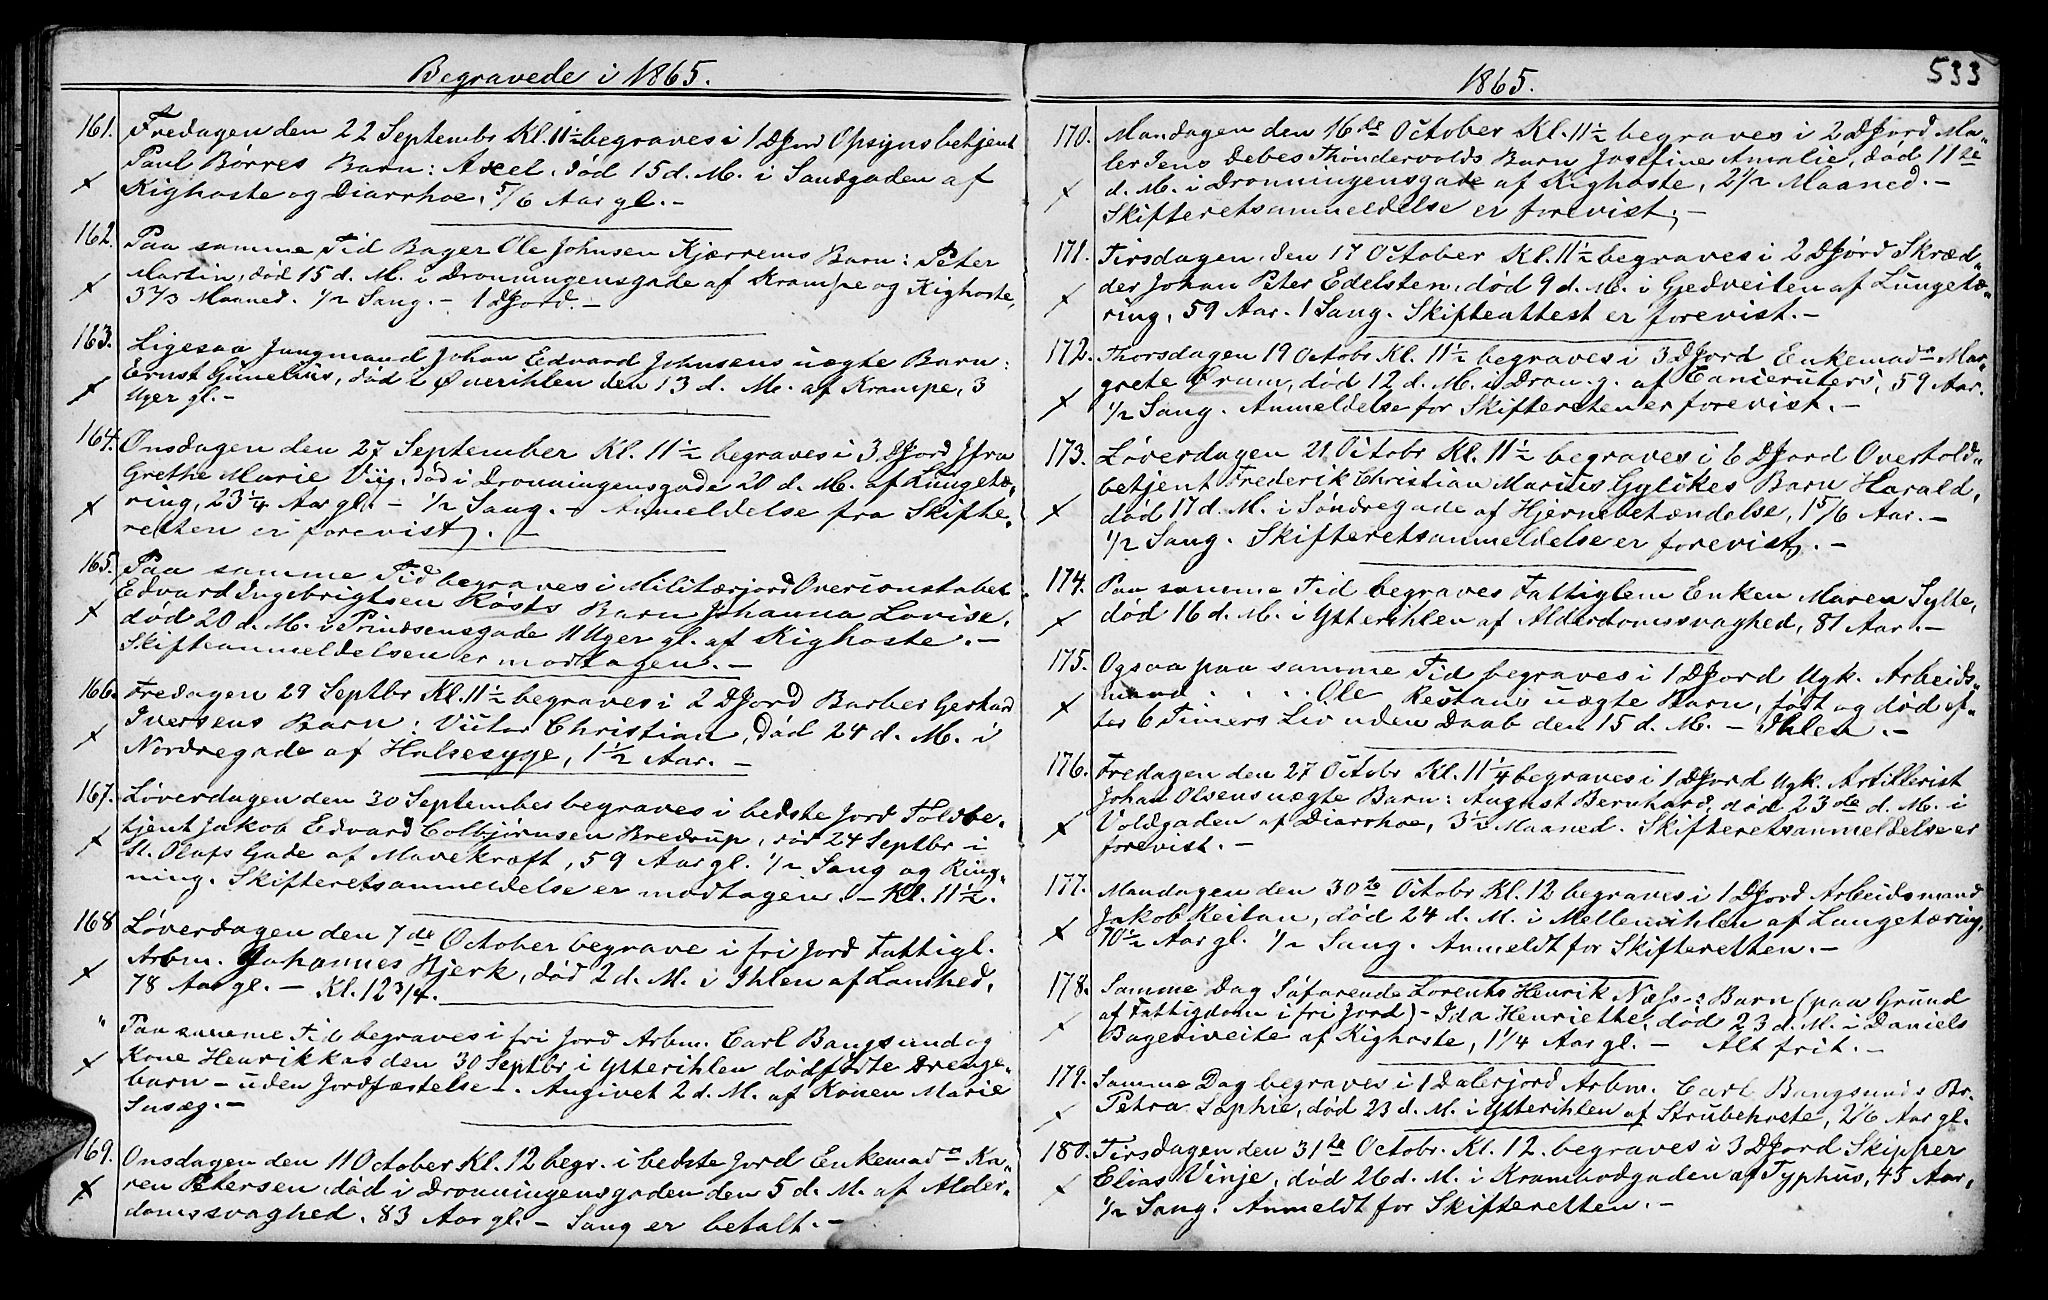 Begravede i 1865.
161. Fredagen den 22 Septembr Kl. 11½ begraves i 1 DJord Opsynsbetjent
Paul Børres Barn: Axel, død 15 d. M. i Sandgaden af
Kighoste og Diarrhoe, 5/6 Aar gl. –
162. Paa samme Tid Bager Ole Johnsen Kjærrems Barn: Peter
Martin, død 15 d. M. i Dronningensgade af Krampe og Kighoste,
3 2/3 Maaned. 1/2 Sang. – 1 DJord. –
163. Ligesaa Jungmand Johan Edvard Johnsens uægte Barn:
Ernst Gunelius, død i Øvreihlen den 13 d. M. af Krampe, 3
Uger gl. –
164. Onsdagen den 27 September Kl. 11½ begraves i 3 DJord Jfru
Grethe Marie Viij, død i Dronningensgade 20 d. M. af Lungetæ-
ring, 23 ¼ Aar gl. – ½ Sang. – Anmeldelse fra Skifte-
retten er forevist. –
165. Paa samme Tid begraves i Militærjord Overconstabel
Edvard Ingebrigtsen Røsts Barn Johanna Lovise,
død 20 d. M. i Prindsensgade 11 Uger gl. af Kighoste. –
Skifteanmeldelsen er modtagen. –
166. Fredagen 29 Septbr Kl. 11½ begraves i 2 DJord Barber Gerhard
Iversens Barn: Victor Christian, død 24 d. M. i
Nordregade af Halsesyge, 1½ Aar. –
167. Løverdagen den 30 September begraves i bedste Jord Toldbe-
tjent Jakob Edvard Colbjørnsen Bredrup, død 24 Septbr i
St. Olafs Gade af Mavekræft, 59 Aar gl. 1/2 Sang og Ring-
ning. Skifteretsanmeldelse er modtagen. – Kl. 11½.
168 Løverdagen den 7de October begrave i fri Jord Fattigl.
Arbm. Johannes Bjerk, død 2 d. M. i Ihlen af Lamhed,
78 Aar gl. – Kl. 12 3/4.
" Paa samme Tid begraves i fri Jord Arbm. Carl Bangsund og
Kone Henrikkas den 30 Septbr i Ytterihlen dødfødte Drenge-
barn – uden Jordfæstelse –. Angivet 2 d. M. af Konen Marie
Susæg. –
169. Onsdagen den 11 October Kl. 12 begr. i bedste Jord Enkemadm Ka-
ren Petersen, død i Dronningensgaden den 5 d. M. af Alder-
domssvaghed, 83 Aar gl. – Sang er betalt. –
1865.
533
170. Mandagen den 16de October Kl. 11½ begraves i 2 DJord Ma-
ler Jens Debes Thøndervolds Barn Josefine Amalie, død 11te
d. M. i Dronningensgade af Kighoste, 2 1/2 Maaned. –
Skifteretsanmeldelse er forevist. –
171. Tirsdagen den 17 October Kl. 11½ begraves i 2 DJord Skræd-
der Johan Peter Edelsten, død 9 d. M. i Gjedveiten af Lungetæ-
ring, 59 Aar. 1 Sang. Skifteattest er forevist. –
172. Thorsdagen 19 Octobr Kl. 11½ begraves i 3 DJord Enkemadm Mar-
grete Ørum, død 12 d. M. i Dron. g. af Canceruteri, 59 Aar.
1/2 Sang. Anmeldelse for Skifteretten er forevist. –
173. Løverdagen 21 Octobr Kl. 11½ begraves i 6 DJord Overtold-
betjent Frederik Christian Marius Gyløkes Barn Harald,
død 17 d. M. i Søndregade af Hjernebetændelse, 1 5/6 Aar. –
1/2 Sang. Skifteretsanmeldelse er forevist. –
174. Paa samme Tid begraves Fattiglem Enken Maren Sylte,
død 16 d. M. i Ytterihlen af Alderdomssvaghed, 81 Aar. –
175. Ogsaa paa samme Tid begraves i 1 DJord Ugk. Arbeids-
mand . . . . Ole Restans uægte Barn, født og død ef-
ter 6 Timers Liv uden Daab den 15 d. M. – Ihlen. –
176. Fredagen den 27 Octobr Kl. 11 1/4 begraves i 1 DJord Ugk. Artillerist
Johan Olsens uægte Barn: August Bernhard, død 23de d. M. i
Voldgaden af Diarrhoe, 3½ Maaned. Skifteretsanmeldelse er
forevist. –
177. Mandagen den 30te Octobr Kl. 12 begraves i 1 DJord Arbeidsmand
Jakob Keitan, død 24 d. M. i Mellemihlen af Lungetæring,
70½ Aar gl. ½ Sang. Anmeldt for Skifteretten. –
178. Samme Dag Søfarende Lorents Henrik Næss's Barn (paa Grund
af Fattigdom i fri Jord) – Ida Henriette, død 23 d. M. i Daniels
Bagerveite af Kighoste, 1 1/4 Aar gl. – Alt frit. –
179. Samme Dag begraves i 1 Dalerjord Arbm. Carl Bangsunds Br.
Petra Sophie, død 23 d. M. i Ytterihlen af Strubehoste, 2 1/6 Aar gl.
180. Tirsdagen den 31te Octobr. Kl. 12. begraves i 3 DJord Skipper
Elias Vinje, død 26 d. M. i Krambodgaden af Typhus, 45 Aar,
1/2 Sang. Anmeldt for Skifteretten. –